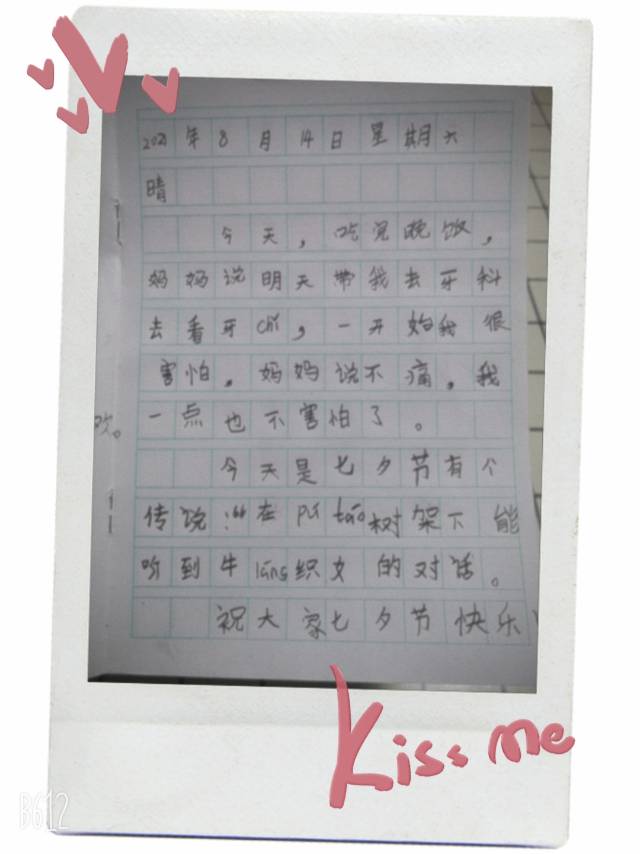 2021年8月14日星期六
晴
今天，吃完晚饭，
妈妈说明天带我去牙科
去看牙chǐ，一开始我很
害怕，妈妈说不痛，我
一点也不害怕了。
欢。
今天是七夕节有个
传说：“在pú táo树架下能
听到牛láng织女的对话。
祝大家七夕节快乐！
Kiss me
B612